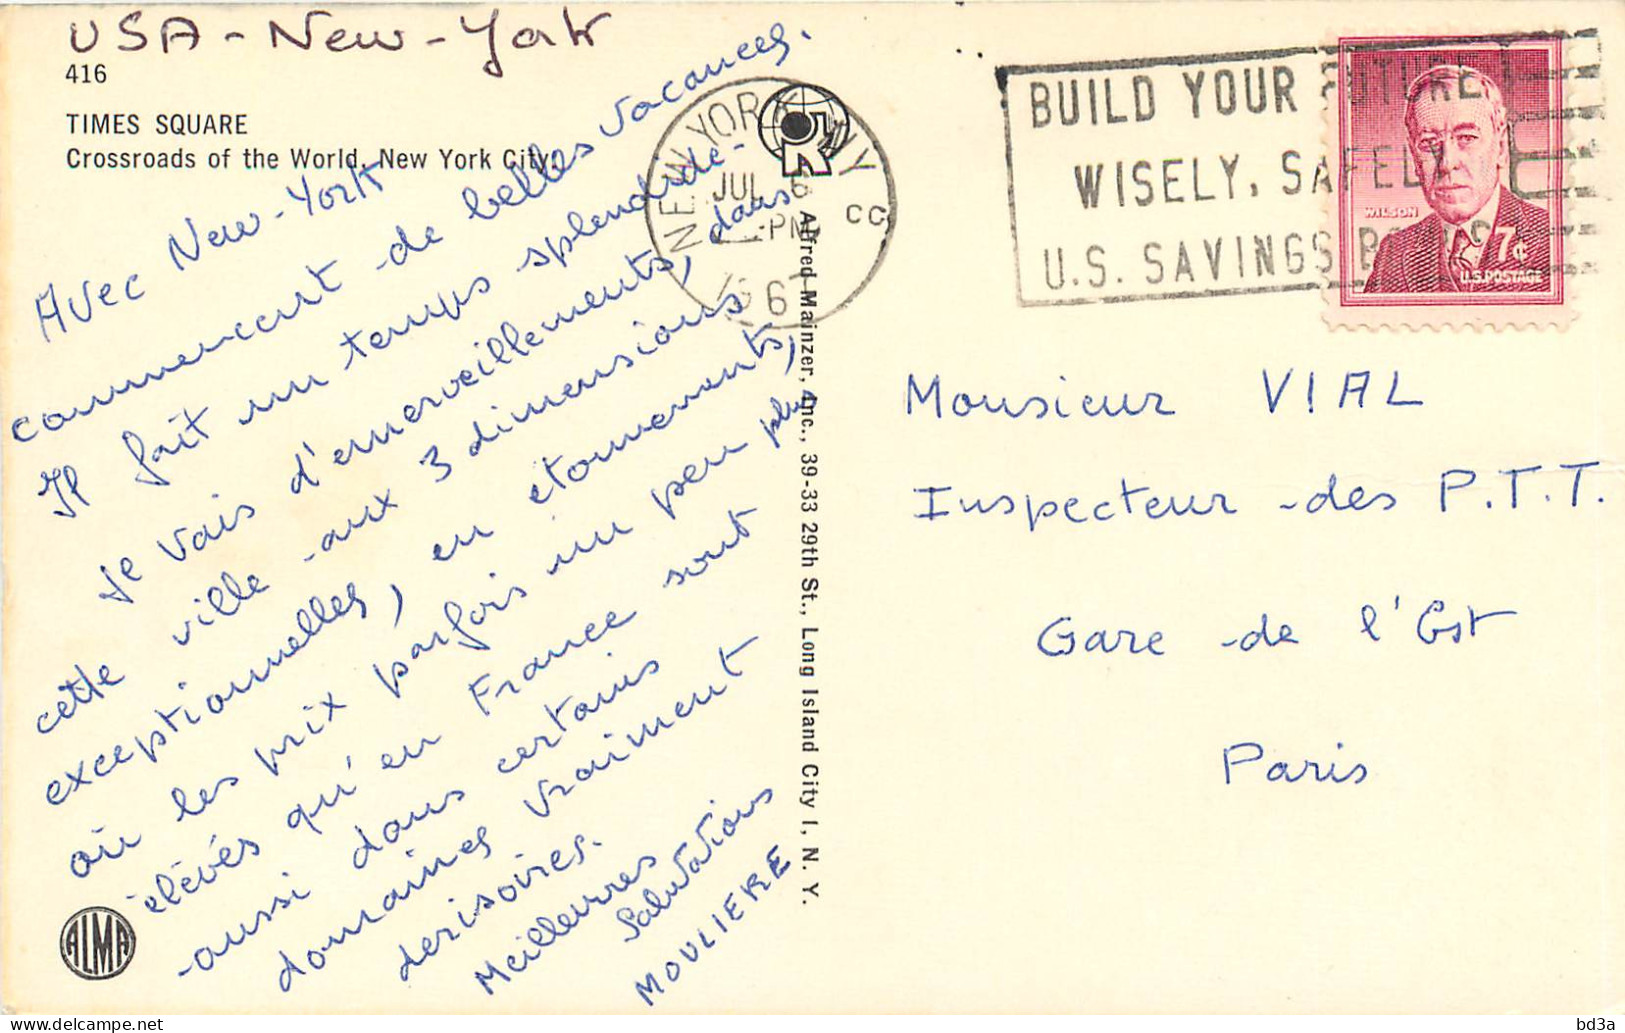 USA - New-York
416
TIMES SQUARE
Crossroads of the World, New York City.
Avec New-York
commencent de belles vacances.
Il fait un temps splendide.
Je vais d'émerveillements, dans
cette ville aux 3 dimensions
exceptionnelles, en étonnements,
où les prix parfois un peu plus
élevés qu'en France sont
aussi dans certains
domaines vraiment
dérisoires.
Meilleures
Salutations
MOULIERE
ALMA
Alfred Mainzer, Inc., 39-33 29th St., Long Island City I, N. Y.
NEW YORK NY
JUL
PM
1967
CC
BUILD YOUR FUTURE
WISELY, SAFELY
U.S. SAVINGS BONDS
WILSON
7¢
U.S. POSTAGE
Monsieur VIAL
Inspecteur des P.T.T.
Gare de l'Est
Paris
bd3a